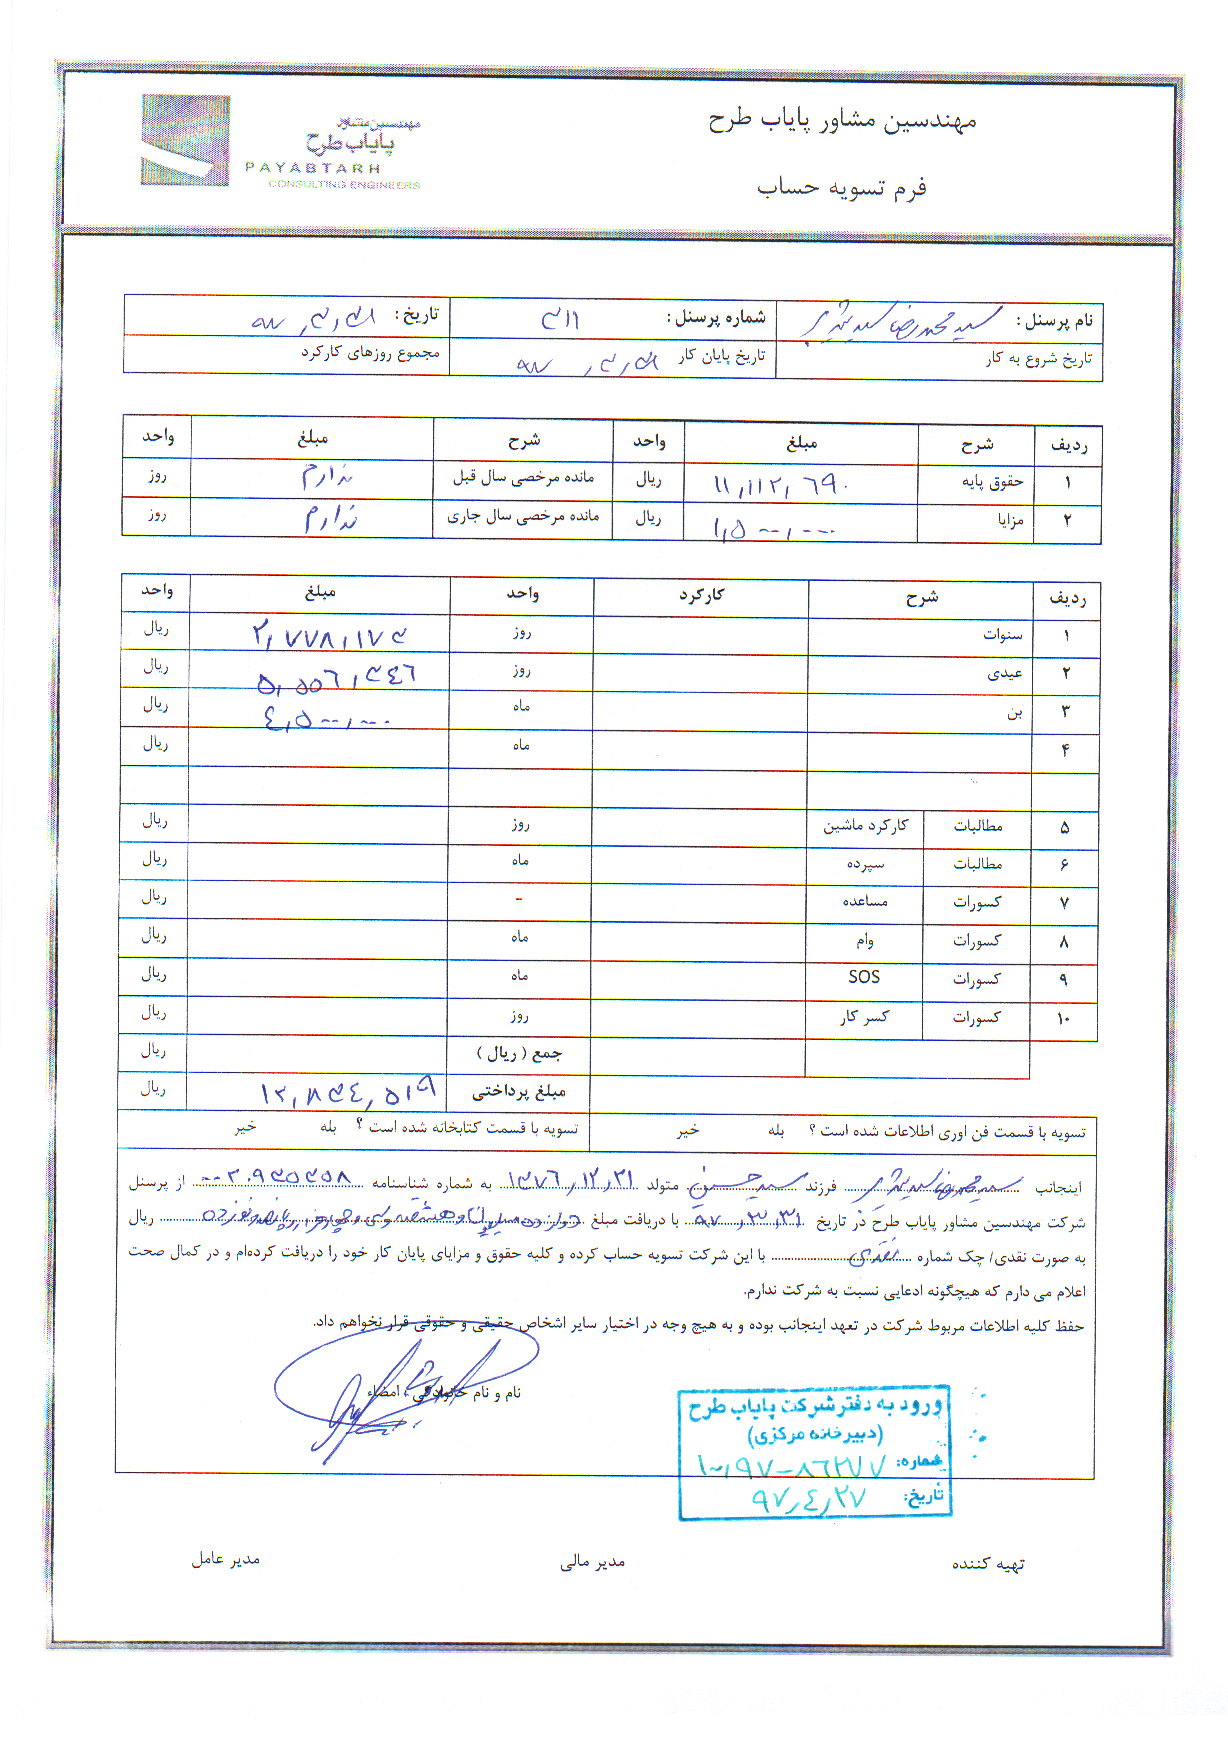 مهندسین مشاور پایاب طرح
فرم تسویه حساب
مهندسین مشاور
پایاب طرح
PAYABTARH
CONSULTING ENGINEERS
نام پرسنل : سید محمدرضا سید شماره پرسنل : ۳۱۱ تاریخ : ۹۷/۳/۳۱
تاریخ شروع به کار تاریخ پایان کار ۹۷/۳/۳۱ مجموع روزهای کارکرد
ردیف شرح مبلغ واحد شرح مبلغ واحد
۱ حقوق پایه ۱۱,۱۱۲,۶۹۰ ریال مانده مرخصی سال قبل ندارم روز
۲ مزایا ۱,۵۰۰,۰۰۰ ریال مانده مرخصی سال جاری ندارم روز
ردیف شرح کارکرد واحد مبلغ واحد
۱ سنوات روز ۲,۷۷۸,۱۷۳ ریال
۲ عیدی روز ۵,۵۵۶,۳۴۶ ریال
۳ بن ماه ۴,۵۰۰,۰۰۰ ریال
۴ ماه ریال
۵ مطالبات کارکرد ماشین روز ریال
۶ مطالبات سپرده ماه ریال
۷ کسورات مساعده - ریال
۸ کسورات وام ماه ریال
۹ کسورات SOS ماه ریال
۱۰ کسورات کسر کار روز ریال
جمع ( ریال ) ریال
مبلغ پرداختی ۱۲,۸۳۴,۵۱۹ ریال
تسویه با قسمت فن اوری اطلاعات شده است ؟ بله خیر تسویه با قسمت کتابخانه شده است ؟ بله خیر
اینجانب سید محمدرضا سید فرزند سید حسین متولد ۱۳۷۶/۱۲/۲۱ به شماره شناسنامه ۰۰۲۰۹۳۵۳۵۸ از پرسنل
شرکت مهندسین مشاور پایاب طرح در تاریخ ۹۷/۳/۳۱ با دریافت مبلغ دوازده میلیون و هشتصد و سی و چهار هزار و پانصد و نوزده ریال
به صورت نقدی/ چک شماره نقدی با این شرکت تسویه حساب کرده و کلیه حقوق و مزایای پایان کار خود را دریافت کرده‌ام و در کمال صحت
اعلام می دارم که هیچگونه ادعایی نسبت به شرکت ندارم.
حفظ کلیه اطلاعات مربوط شرکت در تعهد اینجانب بوده و به هیچ وجه در اختیار سایر اشخاص حقیقی و حقوقی قرار نخواهم داد.
نام و نام خانوادگی ، امضاء
ورود به دفتر شرکت پایاب طرح
(دبیرخانه مرکزی)
شماره: ۱۰۰/۹۷-۸۶۲۷۷
تاریخ: ۹۷/۴/۲۷
تهیه کننده مدیر مالی مدیر عامل